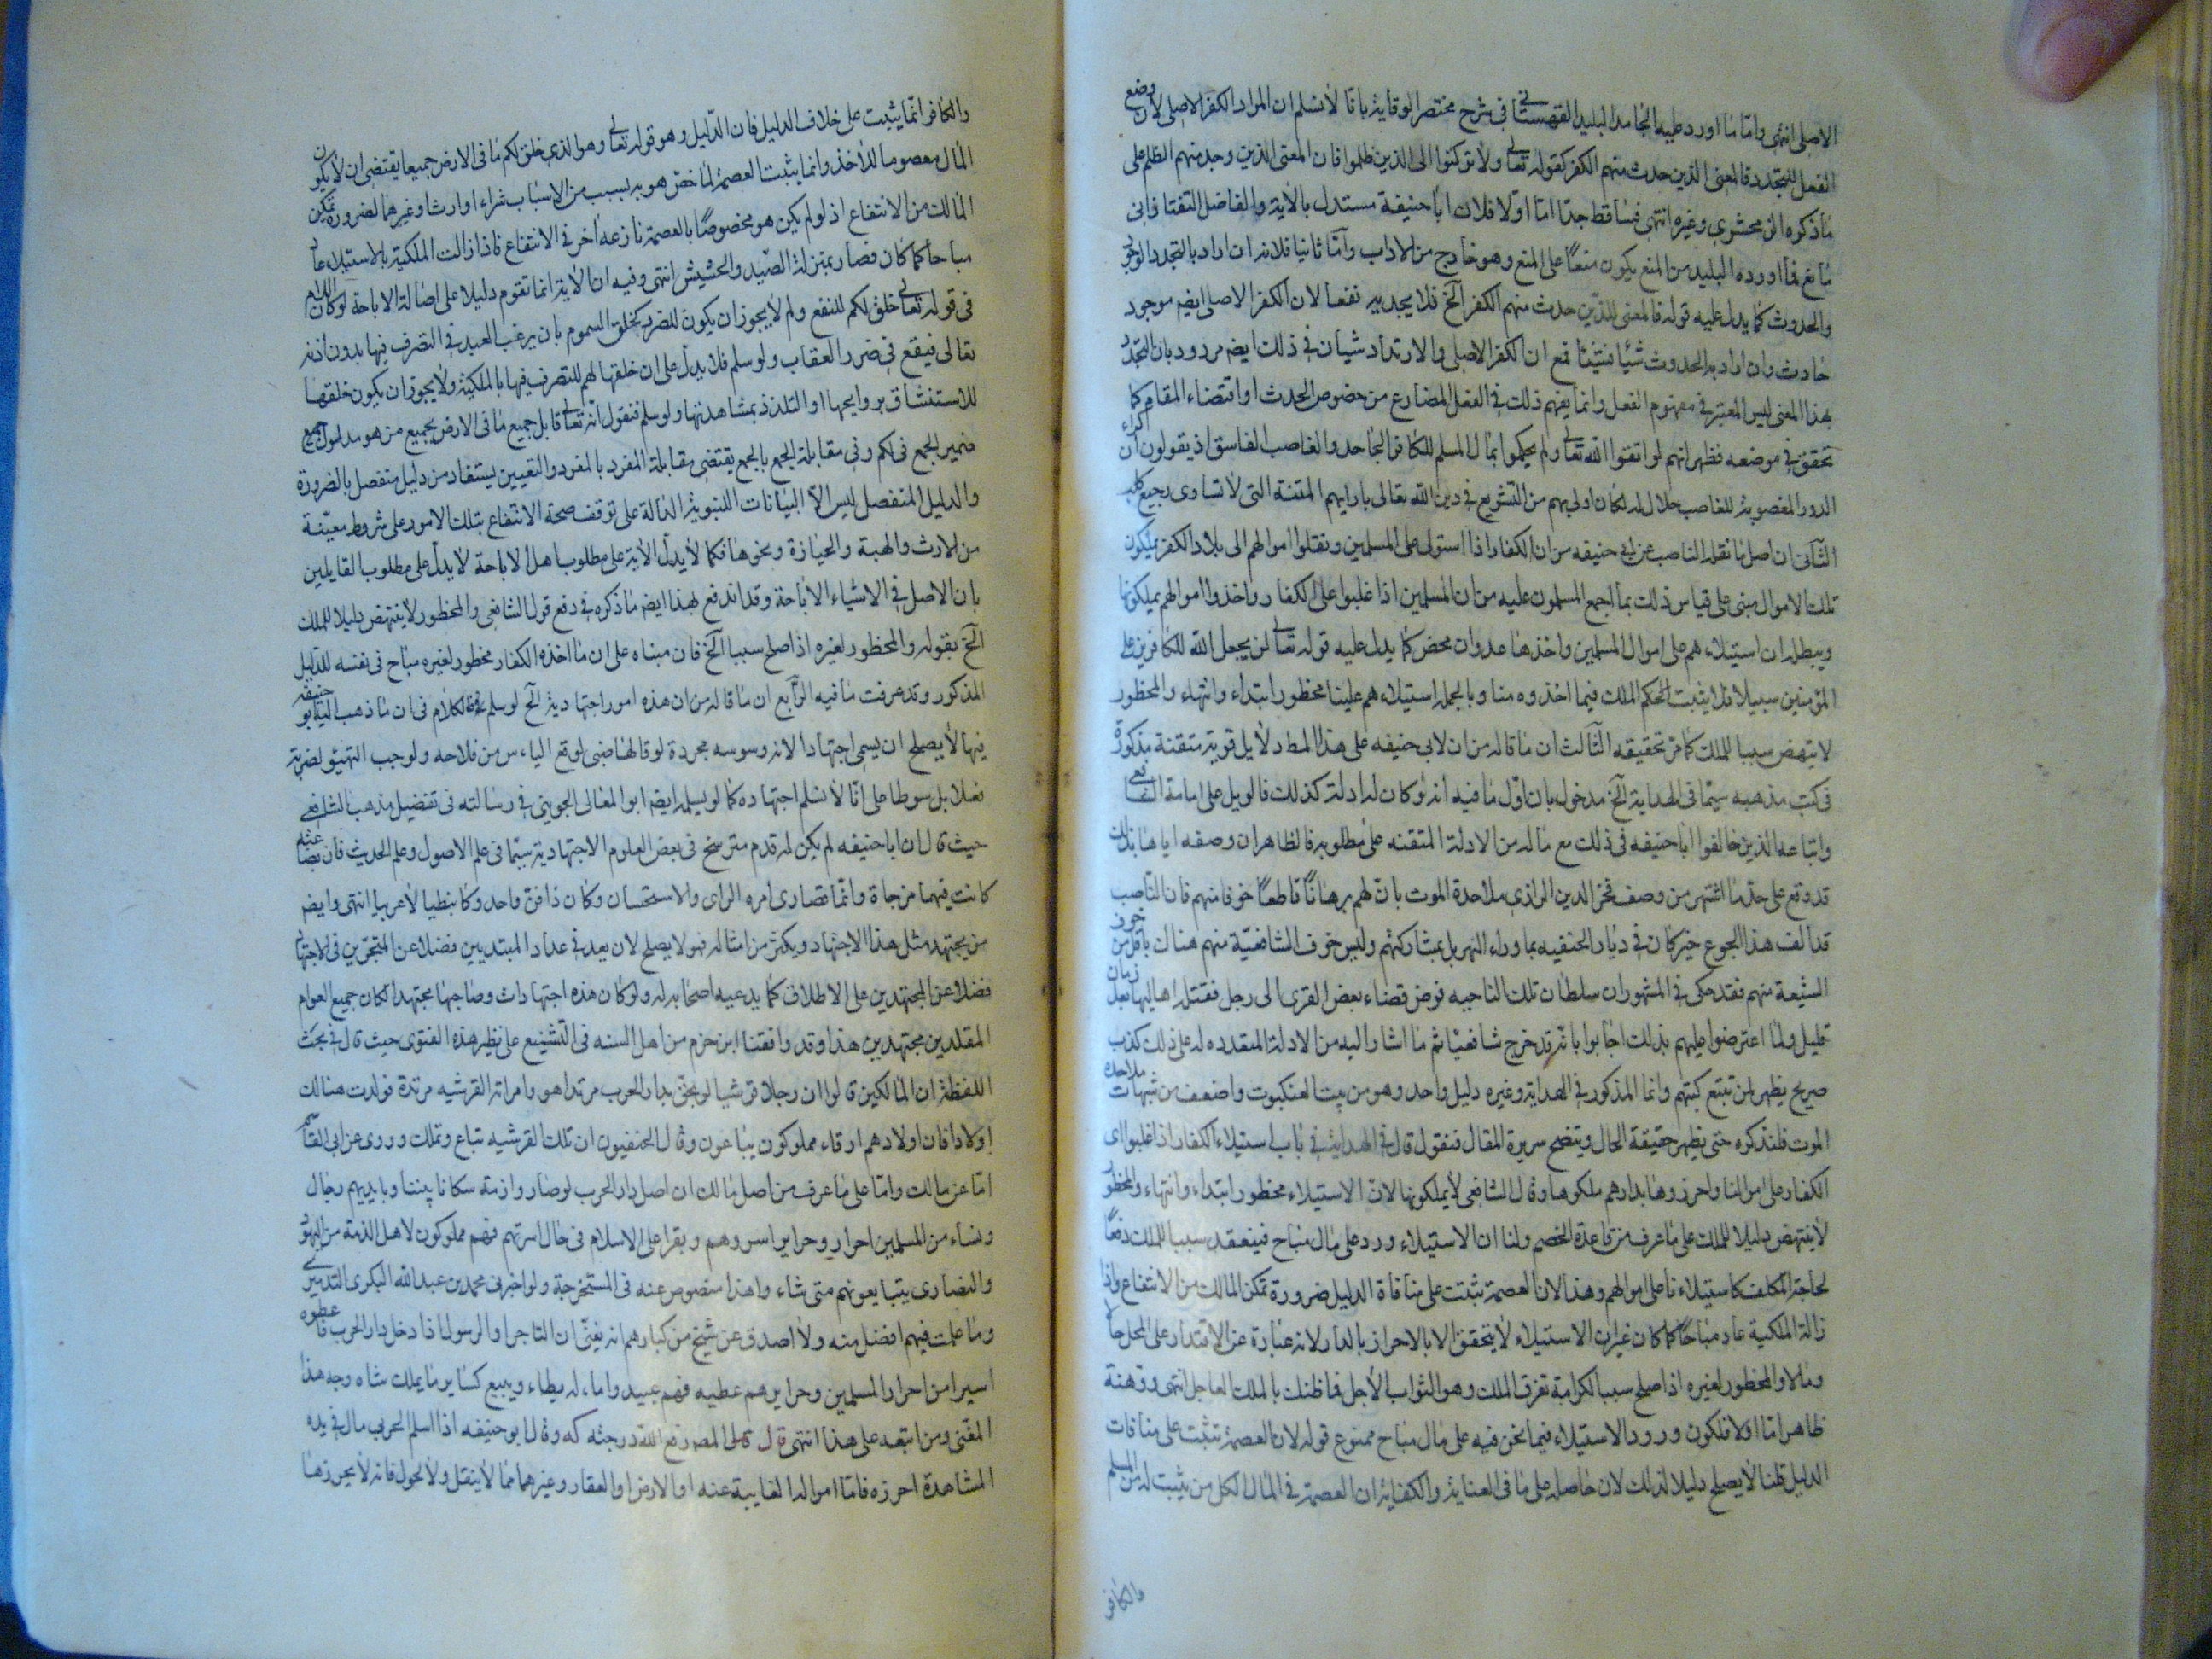 الاصلى انتهى واما ما اورد عليه الجامد البليد القهستانى فى شرح مختصر الوقاية بانا لا نسلم ان المراد الكفر الاصلى لان وضع
الفعل للتجدد فالمعنى الذين حدث منهم الكفر كقوله تعالى ولا تركنوا الى الذين ظلموا فان المعنى الذين وجد منهم الظلم على
ما ذكره الزمحشرى وغيره انتهى فساقط جدا اما اولا فلان ابا حنيفة مستدل بالاية والفاضل التفتازانى
مانع فما اورده البليد من المنع يكون منعا على المنع وهو خارج من الاداب واما ثانيا فلانه ان اراد بالتجدد الوجود
والحدوث كما يدل عليه قوله فالمعنى للذين حدث منهم الكفر الخ فلا يجديه نفعا لان الكفر الاصلى ايضا موجود
حادث وان اراد به الحدوث شيئا فشيئا فمع ان الكفر الاصلى والارتداد شيان فى ذلك ايضا مردود بان التجدد
بهذا المعنى ليس المعتبر فى مفهوم الفعل وانما يفهم ذلك فى الفعل المضارع من خصوص الحدث او اقتضاء المقام كما
تحقق فى موضعه فظهر انهم لو اتقوا الله تعالى ولم يحكموا بمال المسلم للكافر الجاحد والغاصب الفاسق اذ يقولون ان كراء
الدور المغصوبة للغاصب حلال له لكان اولى بهم من التشريع فى دين الله تعالى بارايهم المتنة التى لا تساوى رجيع كلب
الثانى ان اصل ما نقله الناصب عن ابى حنيفه من ان الكفار اذا استولى على المسلمين ونقلوا اموالهم الى بلاد الكفر يملكون
تلك الاموال مبنى على قياس ذلك بما اجمع المسلمون عليه من ان المسلمين اذا غلبوا على الكفار واخذوا اموالهم يملكونها
ويبطله ان استيلاءهم على اموال المسلمين واخذها عدوان محض كما يدل عليه قوله تعالى لن يجعل الله للكافرين على
المؤمنين سبيلا فلا يثبت الحكم الملك فيما اخذوه منا وبالجمله استيلاءهم علينا محظور ابتداء وانتهاء والمحظور
لا ينتهض سببا للملك كما مر تحقيقه الثالث ان ما قاله من ان لابى حنيفه على هذا المط دلايل قوية متقنة مذكورة
فى كتب مذهبه سيما فى الهداية الخ مدخول بان اول ما فيه انه لو كان له ادلة كذلك فالويل على امامه الشافعى
واتباعه الذين خالفوا ابا حنيفه فى ذلك مع ما له من الادلة المتقنه على مطلوبه فالظاهر ان وصفه اياها بذلك
قد وقع على حد ما اشتهر من وصف فخر الدين الرازى ملاحدة الموت بان لهم برهانا قاطعا خوفا منهم فان الناصب
قد الف هذا الجوع حين كان فى ديار الحنفيه بما وراء النهر بل بمشاركتهم وليس خوف الشافعية منهم هناك باقل من خوف
الشيعة منهم فقد حكى فى المشهور ان سلطان تلك الناحيه فوض قضاء بعض القرى الى رجل فقتله اهاليها بعد زمان
قليل ولما اعترضوا عليهم بذلك اجابوا بانه قد خرج شافعيا ثم ما اشار اليه من الادلة المتعدده له على ذلك كذب
صريح يظهر لمن تتبع كتبهم وانما المذكور فى الهداية وغيره دليل واحد وهو من بيت العنكبوت واضعف من شبهات ملاحده
الموت فلنذكره حتى يظهر حقيقة الحال ويتضح سريرة المقال فنقول قال فى الهداية فى باب استيلاء الكفار اذا غلبوا اى
الكفار على اموالنا واحرزوها بدارهم ملكوها وقال الشافعى لا يملكونها لان الاستيلاء محظور ابتداء وانتهاء والمحظور
لا ينتهض دليلا للملك على ما عرف من قاعدة الخصم ولنا ان الاستيلاء ورد على مال مباح فينعقد سببا للملك دفعا
لحاجة المكلف كاستيلاءنا على اموالهم وهذا لان العصمة تثبت على منافاة الدليل ضرورة تمكن المالك من الانتفاع واذا
زالت الملكية عاد مباحا كما كان غير ان الاستيلاء لا يتحقق الا بالاحراز بالدار لانه عبارة عن الاقتدار على المحل حالا
ومالا والمحظور لغيره اذا صلح سببا لكرامة تفوق الملك وهو الثواب الاجل فما ظنك بالملك العاجل انتهى ووهنه
ظاهر اما اولا فلكون ورود الاستيلاء فيما نحن فيه على مال مباح ممنوع قوله لان العصمة تثبت على منافات
الدليل قلنا لا يصلح دليلا لذلك لان حاصله على ما فى العناية والكفاية ان العصمة فى المال لكل من يثبت له من المسلم
والكافر
والكافر انما يثبت على خلاف الدليل فان الدليل وهو قوله تعالى وهو الذى خلق لكم ما فى الارض جميعا يقتضى ان لا يكون
المال معصوما للاخذ وانما يثبت العصمة لما خص هو به بسبب من الاسباب شراء او ارثا وغيرهما لضرورة تمكن
المالك من الانتفاع اذ لو لم يكن هو مخصوصا بالعصمة نازعه اخر فى الانتفاع فاذا زالت الملكية بالاستيلاء عاد
مباحا كما كان فصار بمنزلة الصيد والحشيش انتهى وفيه ان الاية انما تقوم دليلا على اصالة الاباحة لو كان اللام
فى قوله تعالى خلق لكم للنفع ولم لا يجوز ان يكون للضرر كخلق السموم بان يرغب العبد فى التصرف فيها بدون اذنه
تعالى فيقع فى ضرر العقاب ولو سلم فلا يدل على ان خلقها لهم للتصرف فيها بالملكية ولا يجوز ان يكون خلقها
للاستنشاق بروايحها او التلذذ بمشاهدتها ولو سلم فنقول انه تعالى قابل جميع ما فى الارض بجميع من هو مدلول جميع
ضمير الجمع فى لكم وفى مقابلة الجمع بالجمع يقتضى مقابلة المفرد بالمفرد والتعيين يستفاد من دليل منفصل بالضرورة
والدليل المنفصل ليس الا البيانات النبوية الدالة على توقف صحة الانتفاع بتلك الامور على شروط معينة
من الارث والهبة والحيازة ونحوها فكما لا يدل الاية على مطلوب اهل الاباحة لا يدل على مطلوب القايلين
بان الاصل فى الاشياء الاباحة وقد اندفع بهذا ايضا ما ذكره فى دفع قول الشافعى والمحظور لا ينتهض دليلا للملك
الخ بقوله والمحظور لغيره اذا صلح سببا الخ فان مبناه على ان ما اخذه الكفار محظور لغيره مباح فى نفسه للدليل
المذكور وقد عرفت ما فيه الرابع ان ما قاله من ان هذه امور اجتهادية الخ لو سلم فالكلام فى ان ما ذهب اليه ابو حنيفه
فيها لا يصلح ان يسمى اجتهادا لانه وسوسه مجردة لو قالها صبى لوقع الياس من فلاحه ولوجب التهيؤ لضربه
نعلا بل سوطا على انا لا نسلم اجتهاده كما لو يسلمه ايضا ابو المعالى الجوينى فى رسالته فى تفضيل مذهب الشافعى
حيث قال ان ابا حنيفه لم يكن له قدم مترسخ فى بعض العلوم الاجتهادية سيما فى علم الاصول وعلم الحديث فان بضاعته
كانت فيهما مزجاة وانما قصارى امره الراى والاستحسان وكان ذا فن واحد وكان نبطيا لا عربيا انتهى وايضا
من يجتهد مثل هذا الاجتهاد ويكثر من امثاله فهو لا يصلح لان يعد فى عداد المبتديين فضلا عن المتبحرين فى الاجتهاد
فضلا عن المجتهدين على الاطلاق كما يدعيه اصحابه له ولو كان هذه اجتهادات وصاحبها مجتهدا لكان جميع العوام
المقلدين مجتهدين هذا وقد وافقنا ابن حزم من اهل السنه فى التشنيع على نظير هذه الفتوى حيث قال فى بحث
اللفظة ان المالكين قالوا ان رجلا قرشيا لو لحق بدار الحرب مرتدا هو وامراته القرشيه مرتدة فولدت هنالك
اولادا فان اولادهم ارقاء مملوكون يباعون وقال الحنفيون ان تلك القرشيه تباع وتملك وروى عن ابى القاسم
اما عن مالك واما على ما عرف من اصل مالك ان اصل دار الحرب لو صاروا ذمة سكانا بيننا وبايديهم رجال
ونساء من المسلمين احرار وحراير اسروهم وبقوا على الاسلام فى حال اسرتهم فهم مملوكون لاهل الذمة من اليهود
والنصارى يتبايعونهم متى شاء وهذا منصوص عنه فى المستخرجة ولو اخبرنى محمد بن عبد الله البكرى التدميرى
وما علمت فيهم افضل منه ولا اصدق عن شيخ من كبارهم انه يفتى ان التاجر او الرسول اذا دخل دار الحرب فاعطوه
اسيرا من احرار المسلمين وحرايرهم عطيه فهم عبيد واماء له يطاء ويبيع كساير ما يملك شاه وجه هذا
المفتى ومن اتبعه على هذا انتهى قال المصـ رفع الله درجته كه وقال ابو حنيفه اذا اسلم الحربى مال فى يده
المشاهدة احرزه فاما امواله الغايبة عنه او الارض او العقار وغيرهما مما لا ينقل ولا يحول فانه لا يحرزها